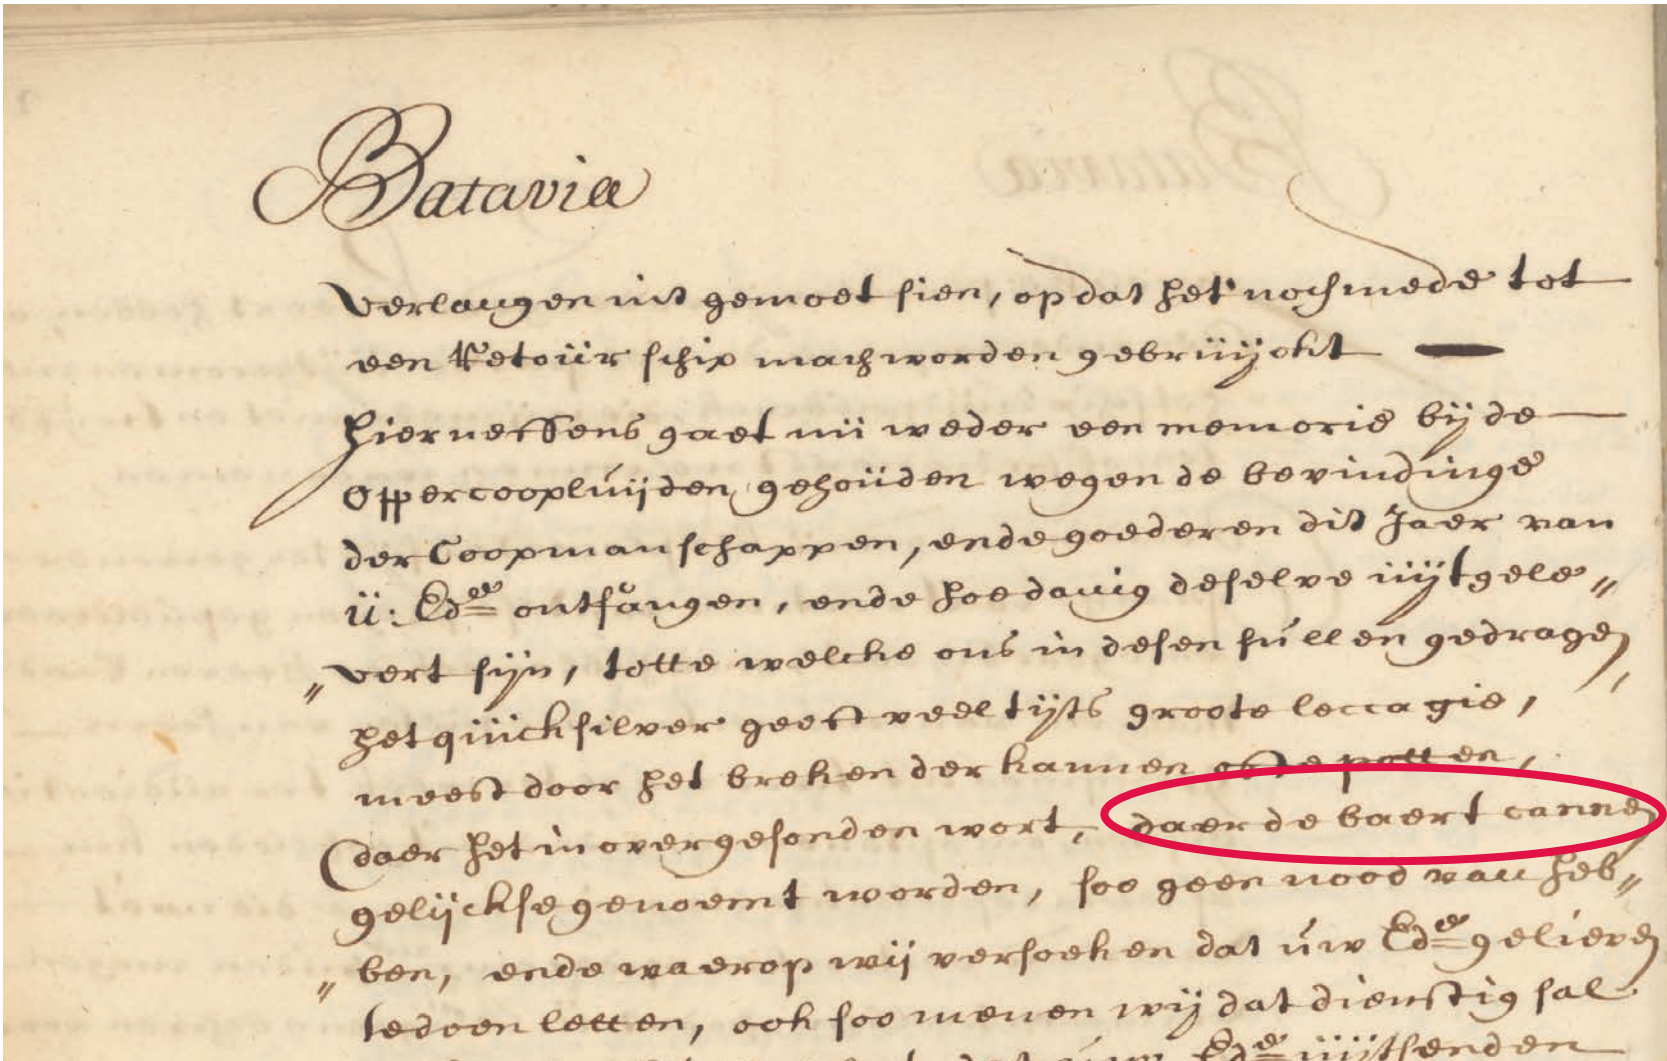 Batavia
verlangen uit gemoet sien, op dat het noch mede tot
een Retoür schip mach worden gebrüijckt
Hier neffens gaet nü weder een memorie bij de
Oppercoopluijden gehoüden wegen de bevindinge
der Coopmanschappen, ende goederen dit Jaer van
Ü: Ed:ee ontfangen, ende hoedanig deselve üijtgele„
„vert sijn, totte welcke ons in desen sullen gedragen,
Het qüicksilver geeft veeltijts groote leccagie,
meest door het breken der kannen ofte potten,
(daer het in overgesonden wort, daer de baert cannen
gelijckse genoemt worden, soo geen nood van heb„
„ben, ende waerop wij versoeken dat uw Ed:e gelieven
te doen letten, ook soo menen wij dat dienstig sal
dat uw Ed:e üijtsenden